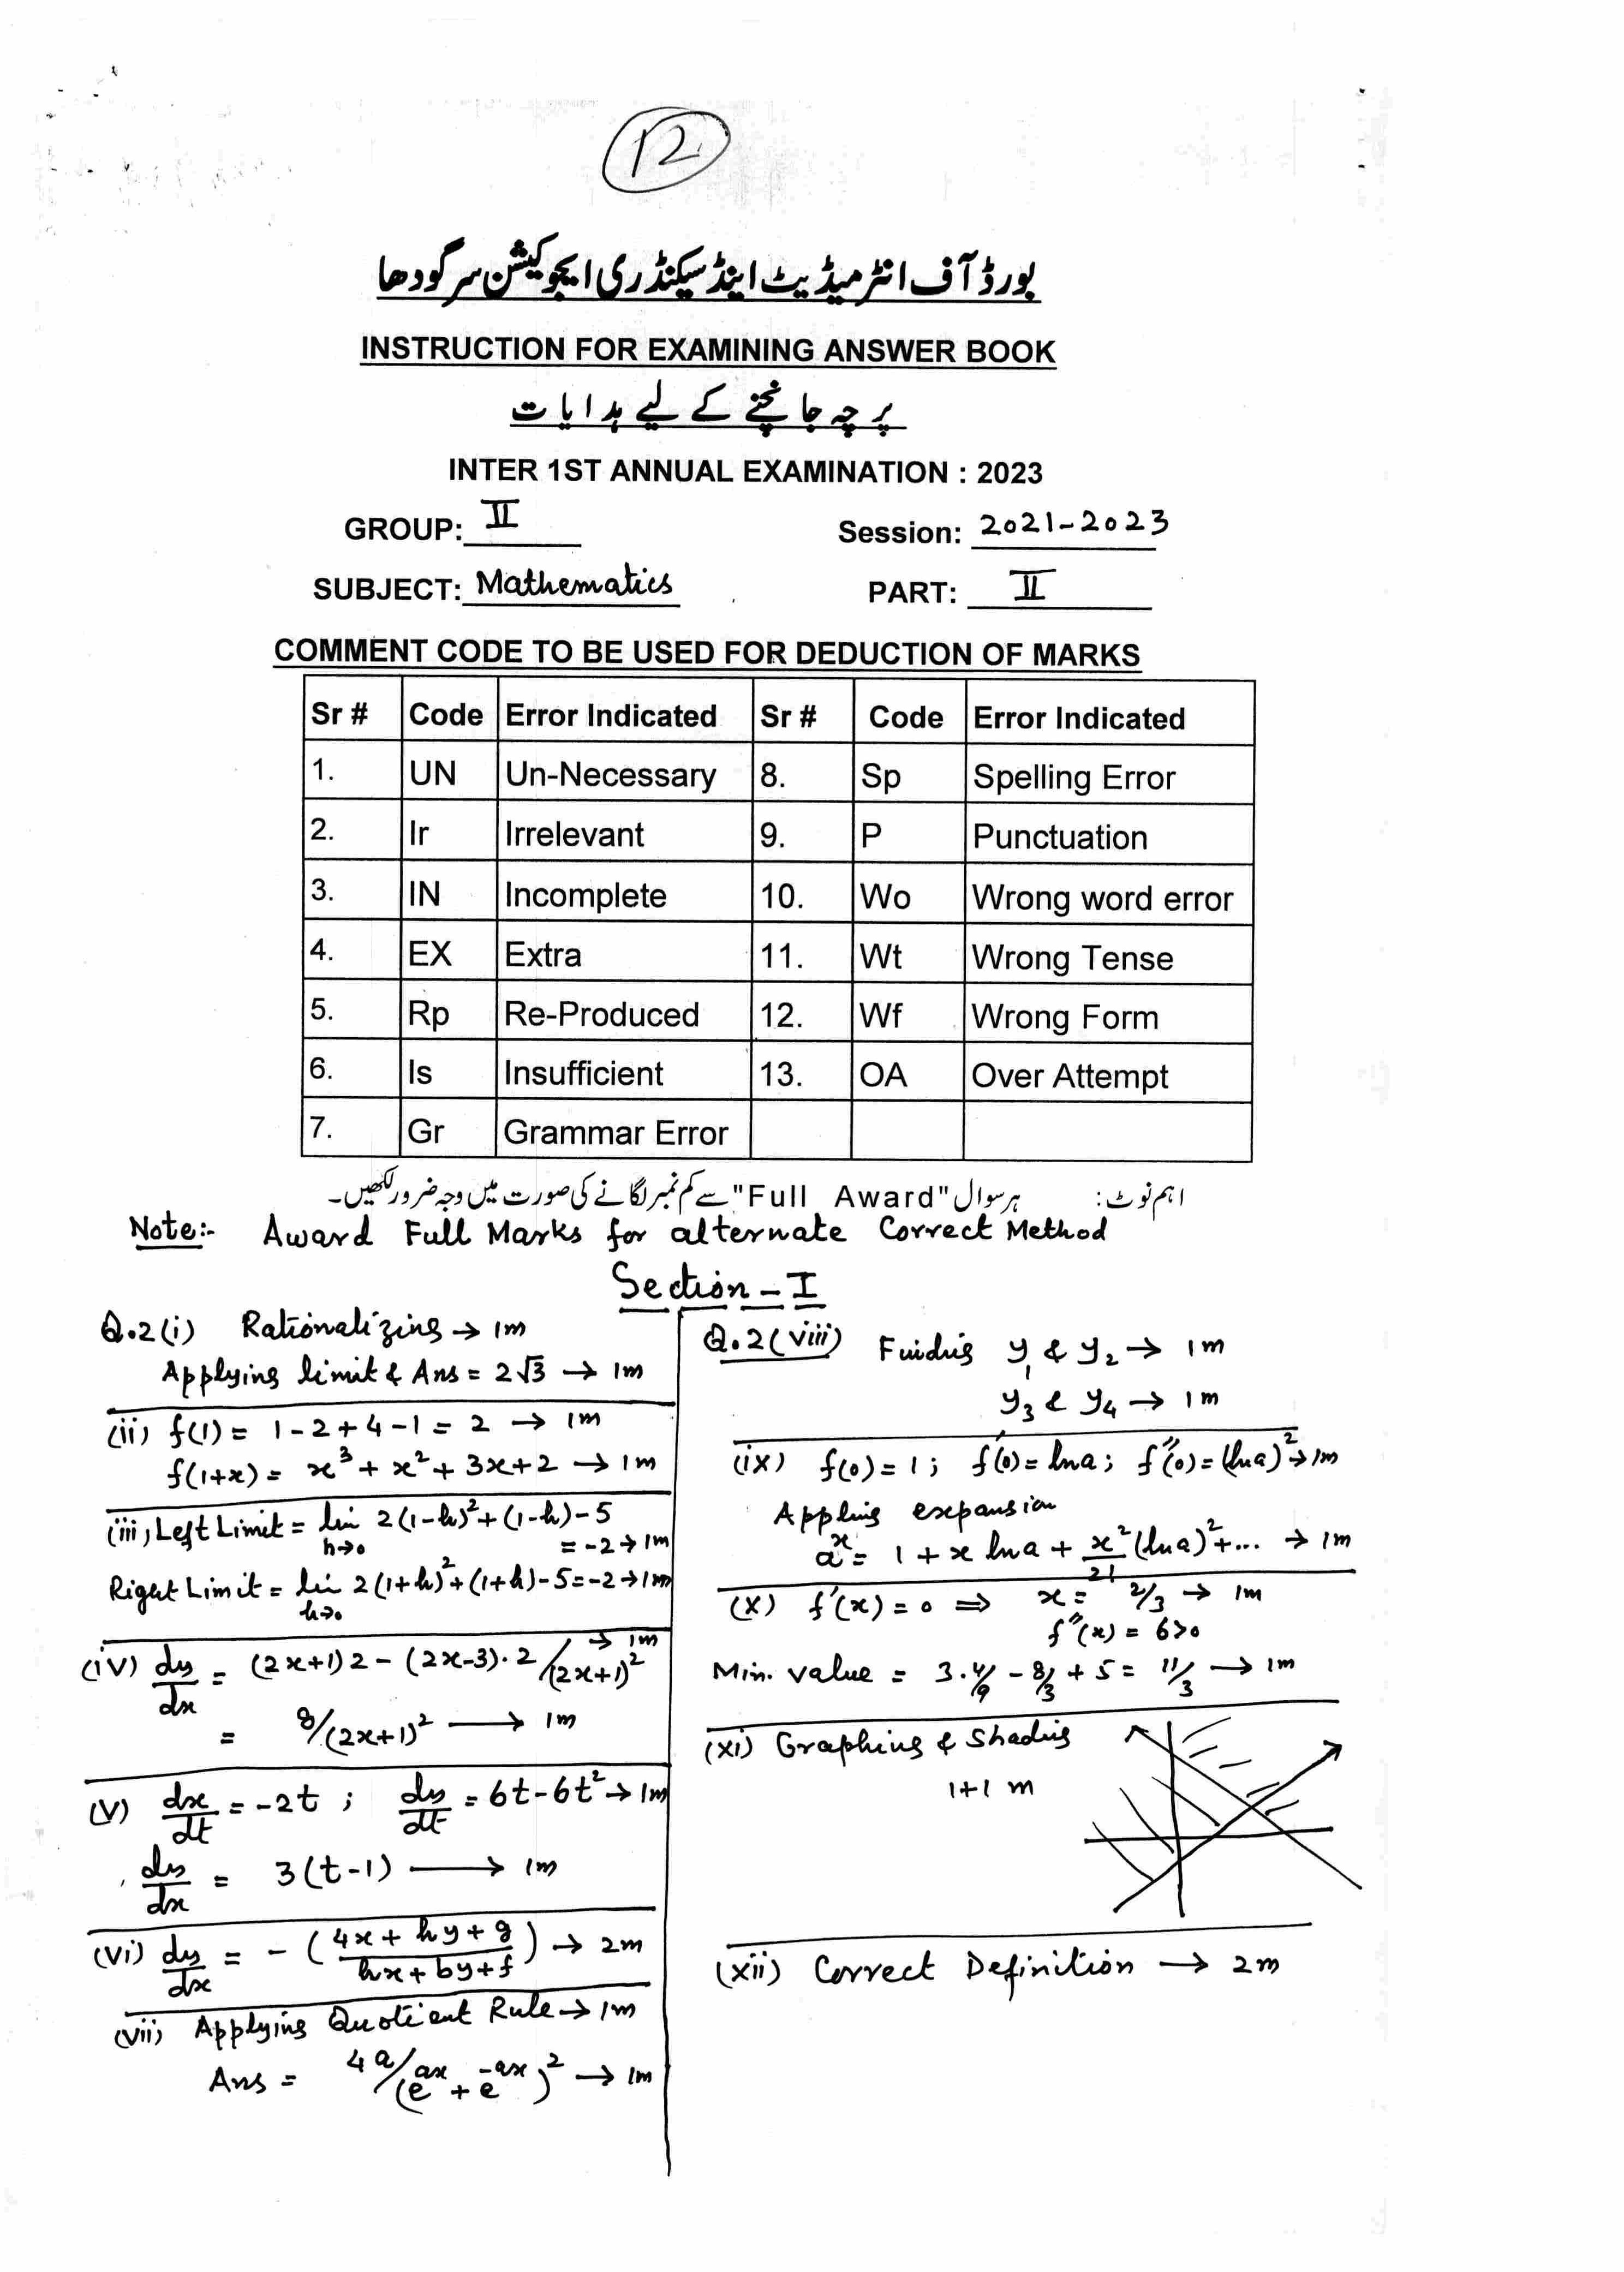 12
بورڈ آف انٹرمیڈیٹ اینڈ سیکنڈری ایجوکیشن سرگودھا
INSTRUCTION FOR EXAMINING ANSWER BOOK
پرچہ جانچنے کے لیے ہدایات
INTER 1ST ANNUAL EXAMINATION : 2023
GROUP: II Session: 2021-2023
SUBJECT: Mathematics PART: II
COMMENT CODE TO BE USED FOR DEDUCTION OF MARKS
Sr # Code Error Indicated Sr # Code Error Indicated
1. UN Un-Necessary 8. Sp Spelling Error
2. Ir Irrelevant 9. P Punctuation
3. IN Incomplete 10. Wo Wrong word error
4. EX Extra 11. Wt Wrong Tense
5. Rp Re-Produced 12. Wf Wrong Form
6. Is Insufficient 13. OA Over Attempt
7. Gr Grammar Error
اہم نوٹ: ہر سوال "Full Award" سے کم نمبر لگانے کی صورت میں وجہ ضرور لکھیں۔
Note:- Award Full Marks for alternate Correct Method
Section - I
Q.2(i) Rationalizing → 1m
Applying limit & Ans = 2√3 → 1m
(ii) f(1) = 1-2+4-1 = 2 → 1m
f(1+x) = x³ + x² + 3x+2 → 1m
(iii) Left Limit = lim 2(1-h)²+(1-h)-5
h→0 = -2 → 1m
Right Limit = lim 2(1+h)²+(1+h)-5=-2→1m
h→0
(iv) dy/dx = (2x+1)2 - (2x-3).2/(2x+1)² → 1m
= 8/(2x+1)² → 1m
(v) dx/dt = -2t ; dy/dt = 6t-6t² → 1m
dy/dx = 3(t-1) → 1m
(vi) dy/dx = - (4x + hy + g / hx + by + f) → 2m
(vii) Applying Quotient Rule → 1m
Ans = 4a/(e^ax + e^-ax)² → 1m
Q.2(viii) Finding y₁ & y₂ → 1m
y₃ & y₄ → 1m
(ix) f(0) = 1 ; f'(0) = ln a ; f''(0) = (ln a)² → 1m
Appling expansion
a^x = 1 + x ln a + x²/2! (ln a)² + ... → 1m
(x) f'(x) = 0 ⇒ x = 2/3 → 1m
f''(x) = 6>0
Min. value = 3.4/9 - 8/3 + 5 = 11/3 → 1m
(xi) Graphing & Shading
1+1 m
(xii) Correct Definition → 2m